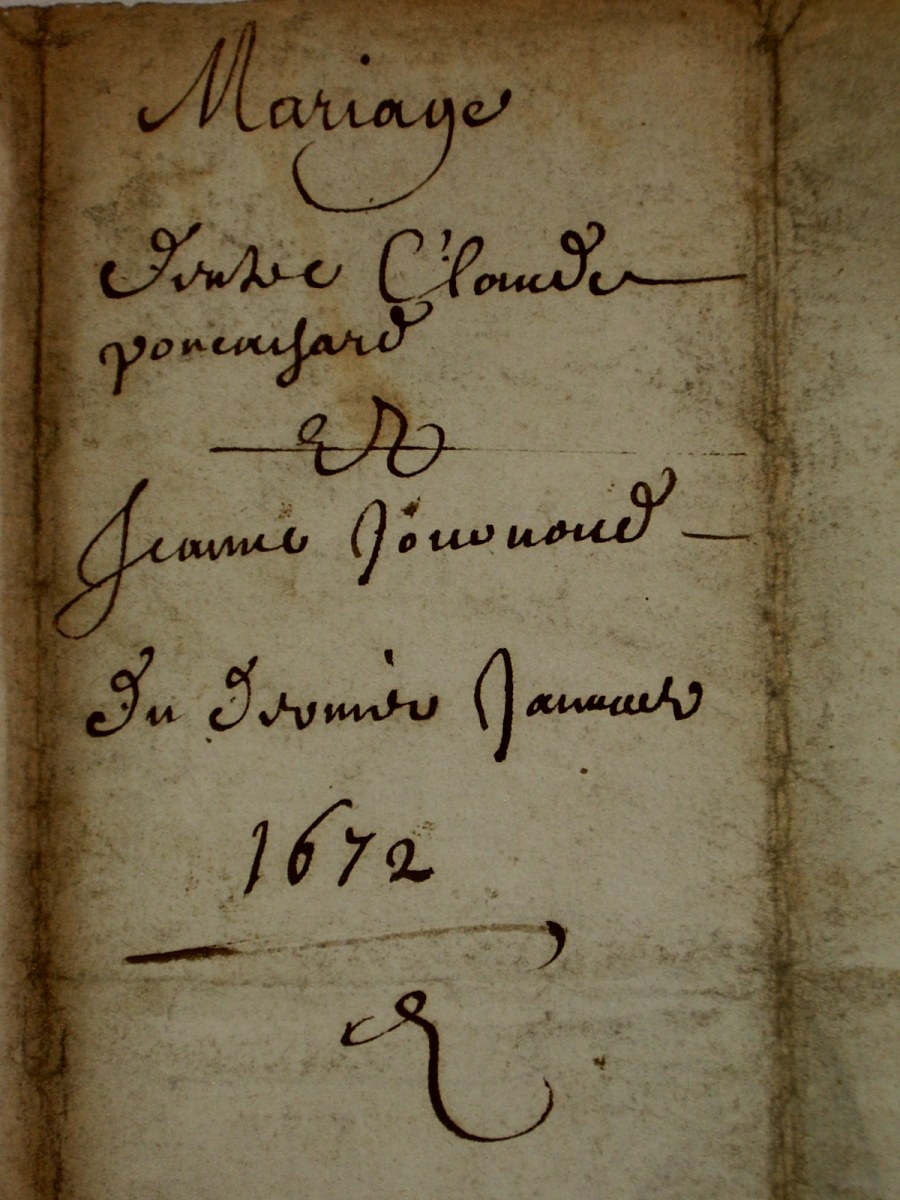 Mariage
d'entre Claude
poncachard
Et
Jeanne Jouvnoud
du dernier Janvier
1672